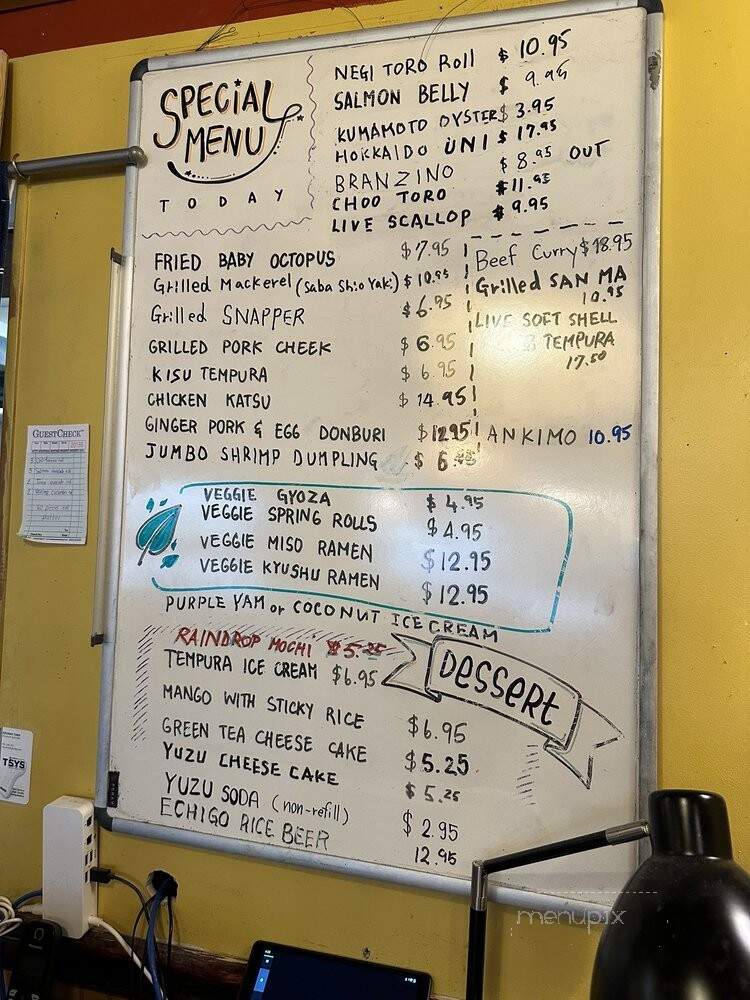 SPECIAL
MENU
TODAY
NEGI TORO Roll $ 10.95
SALMON BELLY $ 9.95
KUMAMOTO OYSTER $ 3.95
HOKKAIDO UNI $ 17.95
BRANZINO $ 8.95 OUT
CHOO TORO $ 11.95
LIVE SCALLOP $ 9.95
FRIED BABY OCTOPUS $ 7.95
Grilled Mackerel (Saba Shio Yaki) $ 10.95
Grilled SNAPPER $ 6.95
GRILLED PORK CHEEK $ 6.95
KISU TEMPURA $ 6.95
CHICKEN KATSU $ 14.95
GINGER PORK & EGG DONBURI $ 12.95
JUMBO SHRIMP DUMPLING $ 6.
Beef Curry $18.95
Grilled SAN MA
10.95
LIVE SOFT SHELL
TEMPURA
17.50
ANKIMO 10.95
VEGGIE GYOZA $ 4.95
VEGGIE SPRING ROLLS $ 4.95
VEGGIE MISO RAMEN $12.95
VEGGIE KYUSHU RAMEN $12.95
PURPLE YAM or COCONUT ICE CREAM
RAINDROP MOCHI $5.25
TEMPURA ICE CREAM $6.95
DESSERT
MANGO WITH STICKY RICE $6.95
GREEN TEA CHEESE CAKE $5.25
YUZU CHEESE CAKE $5.25
YUZU SODA (non-refill) $ 2.95
ECHIGO RICE BEER 12.95
GUESTCHECK
TSYS
menupix